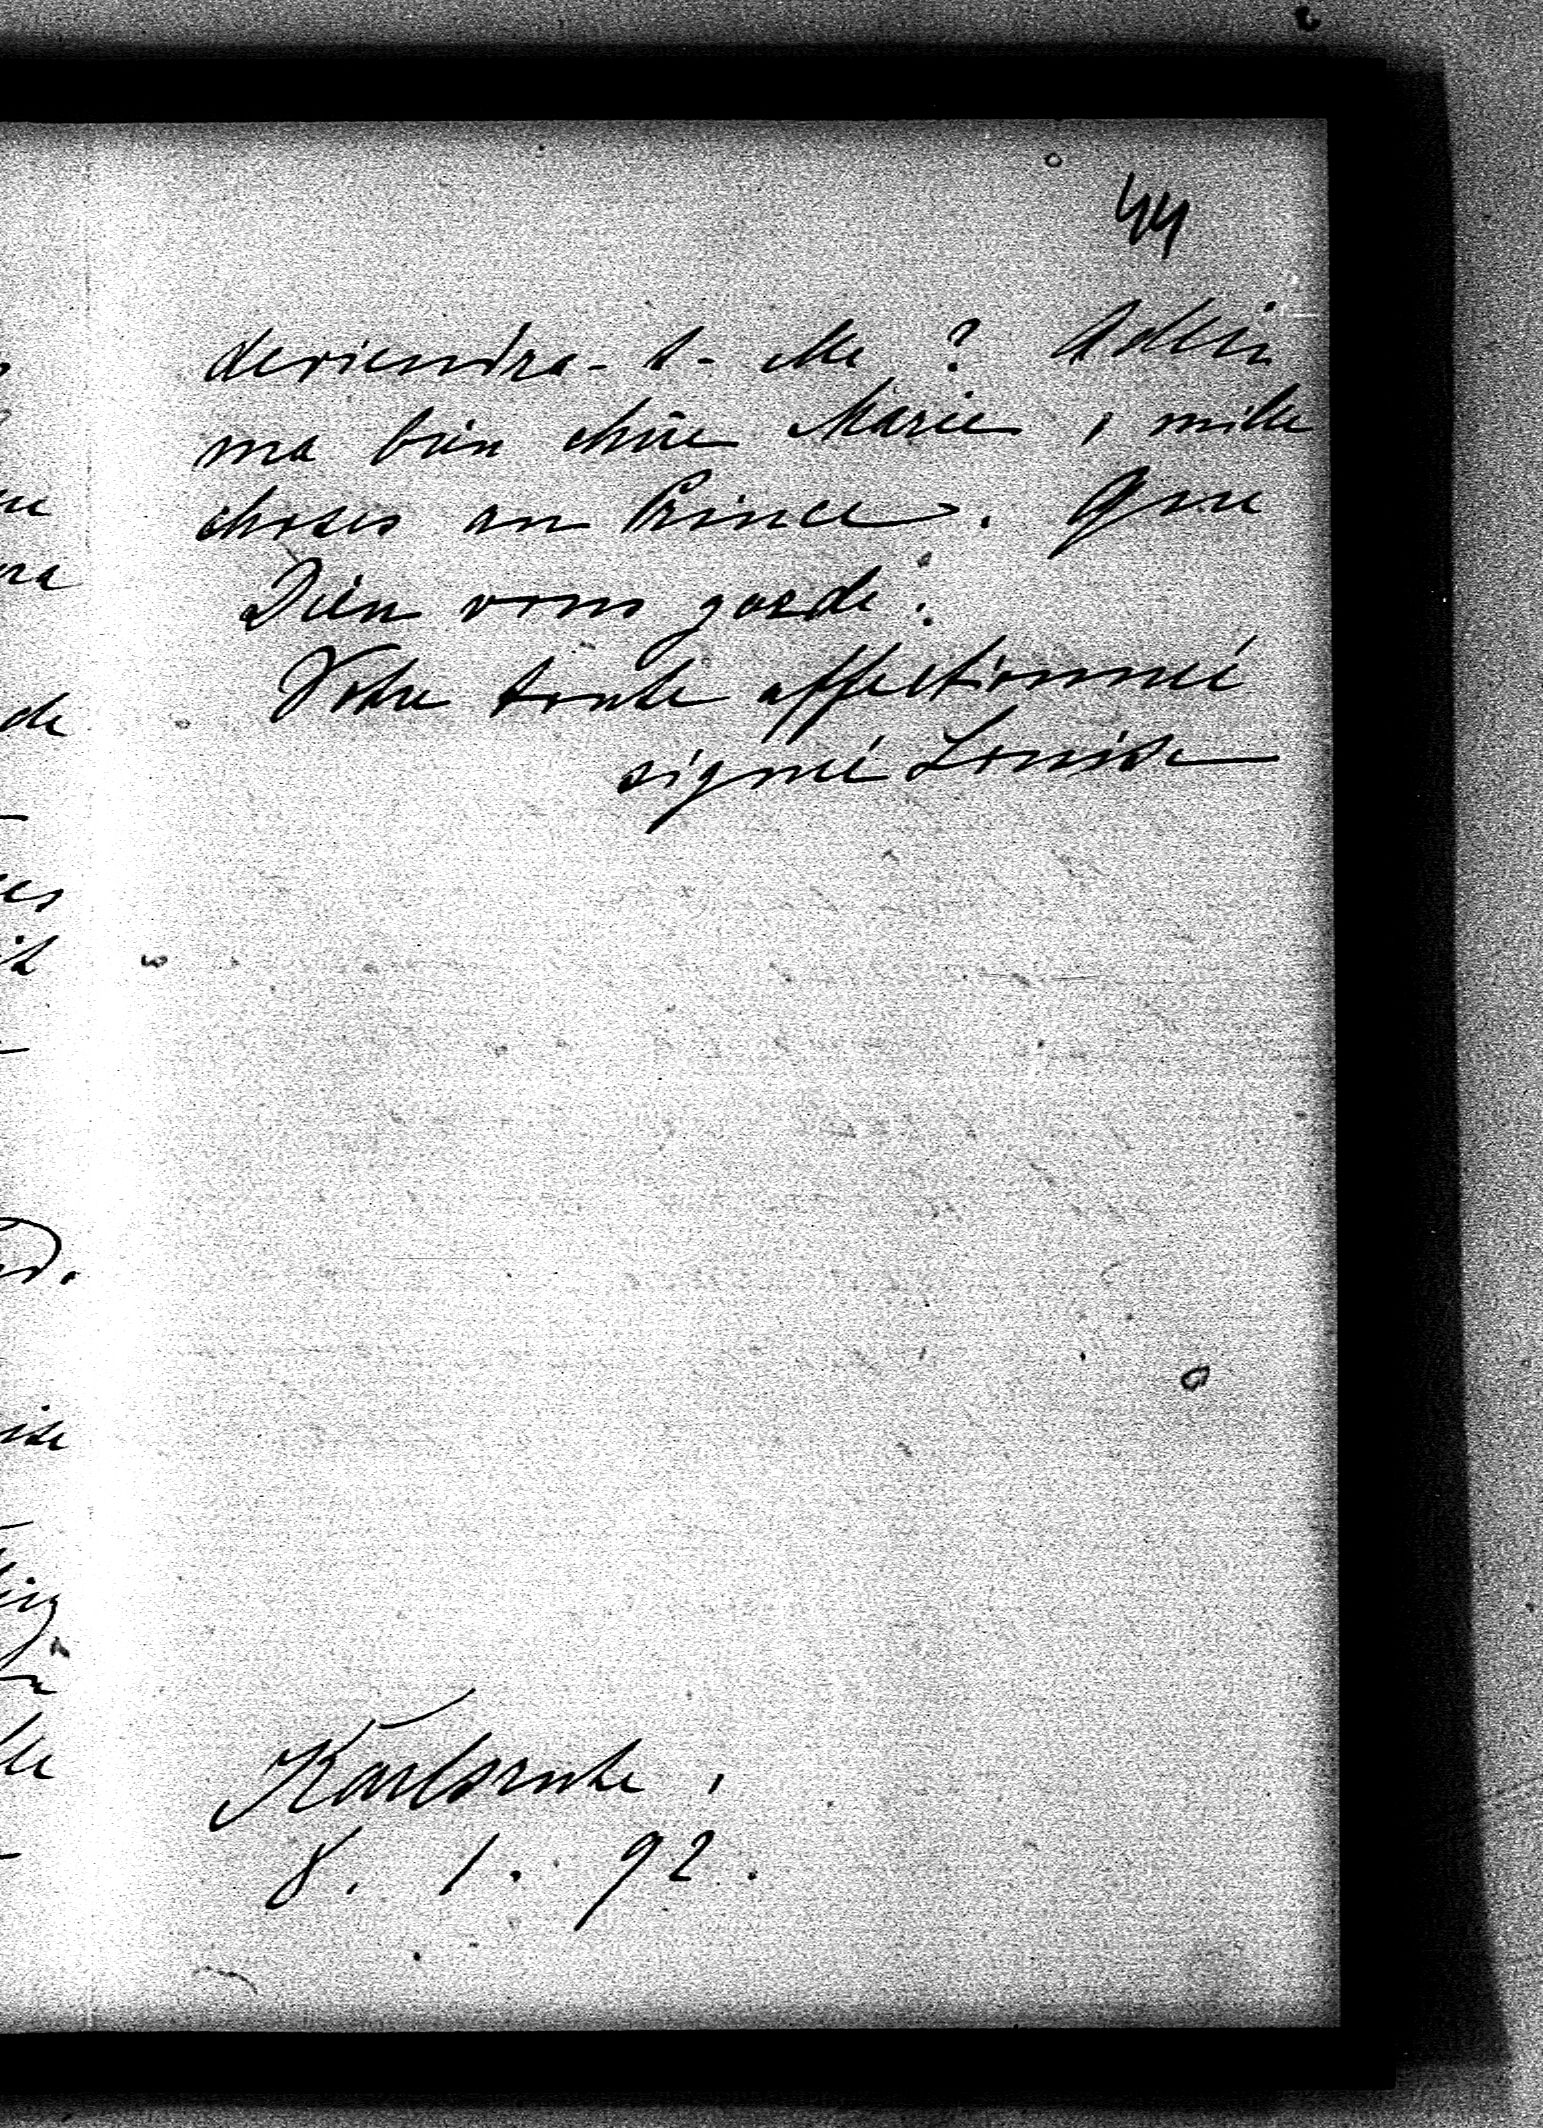 44
deviendra-t-elle ? Adieu
ma bien chère Marie, mille
choses au Prince. Que
Dieu vous garde.
Votre toute affectionnée
signé Louise
Karlsruhe,
8. 1. 92.
de